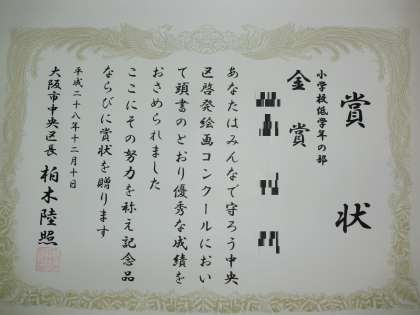 賞状
小学校低学年の部
金賞
あなたはみんなで守ろう中央
区啓発絵画コンクールにおい
て頭書のとおり優秀な成績を
おさめられました
ここにその努力を称え記念品
ならびに賞状を贈ります
平成二十八年十二月十日
大阪市中央区長 柏木陸照